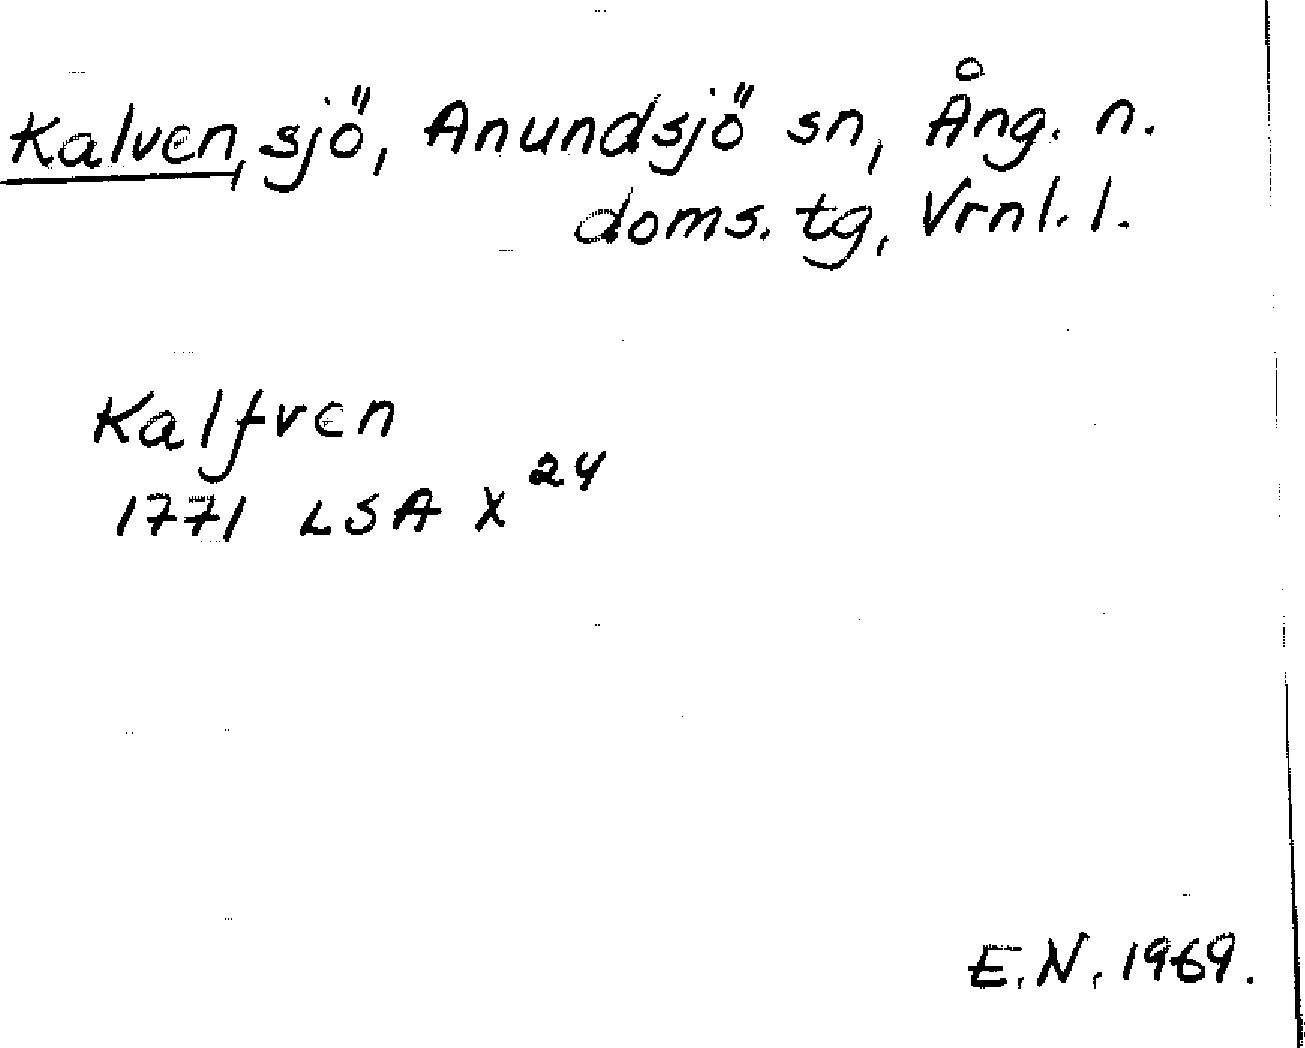 Kalven, sjö, Anundsjö sn, Ång. n.
doms. tg, Vrnl. l.
Kalfven
1771 LSA X 24
E.N. 1969.